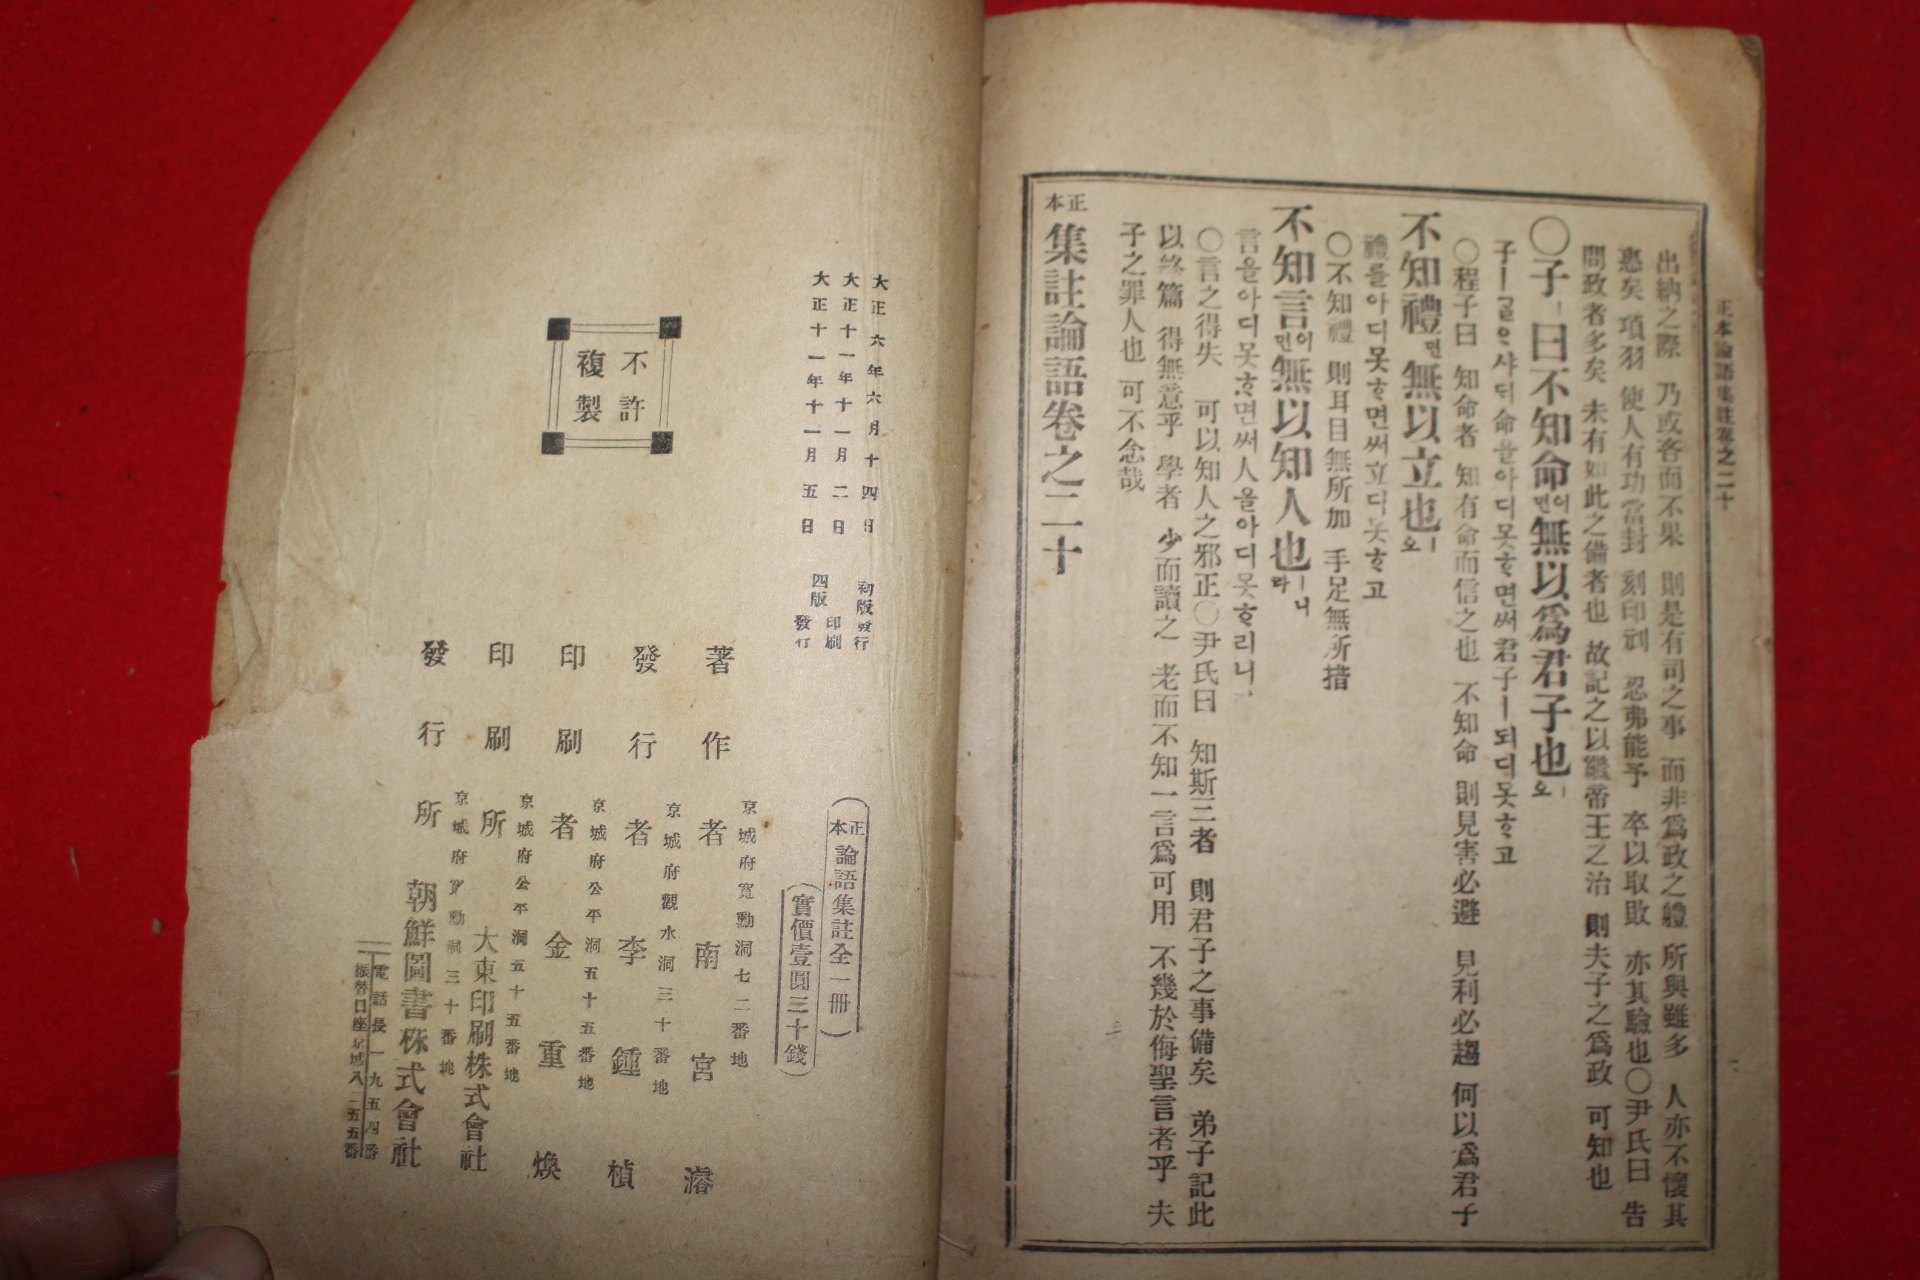 正本論語集註卷之二十
出納之際 乃或吝而不果 則是有司之事 而非爲政之體 所與雖多 人亦不懷其
惠矣 項羽 使人有功當封 刻印刓 忍弗能予 卒以取敗 亦其驗也○尹氏曰 告
問政者多矣 未有如此之備者也 故記之以繼帝王之治 則夫子之爲政 可知也
○子ㅣ曰不知命이면無以爲君子也ㅣ오
子ㅣᄀᆞᆯᄋᆞ샤ᄃᆡ命을아디못ᄒᆞ면써君子ㅣ되디못ᄒᆞ고
○程子曰 知命者 知有命而信之也 不知命 則見害必避 見利必趨 何以爲君子
不知禮면無以立也ㅣ오
禮를아디못ᄒᆞ면써立디못ᄒᆞ고
○不知禮 則耳目無所加 手足無所措
不知言이면無以知人也ㅣ니라
言을아디못ᄒᆞ면써人을아디못ᄒᆞ리니
○言之得失 可以知人之邪正○尹氏曰 知斯三者 則君子之事備矣 弟子記此
以終篇 得無意乎 學者 少而讀之 老而不知一言爲可用 不幾於侮聖言者乎 夫
子之罪人也 可不念哉
正本 集註論語卷之二十
大正六年六月十四日 初版發行
大正十一年十一月二日 四版印刷
大正十一年十一月五日 四版發行
不許
複製
正本 論語集註全一冊
實價壹圓三十錢
京城府寬勳洞七二番地
著作者 南宮濬
京城府觀水洞三十番地
發行者 李鍾楨
京城府公平洞五十五番地
印刷者 金重煥
京城府公平洞五十五番地
印刷所 大東印刷株式會社
京城府寬勳洞三十番地
發行所 朝鮮圖書株式會社
電話長一九五四番
振替口座京城八二五五番